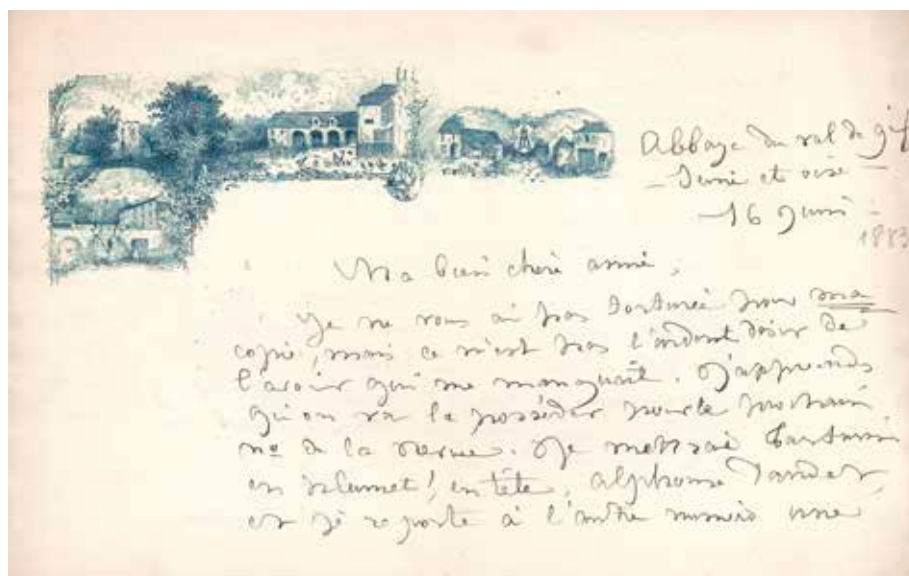 Abbaye du val de gif
— Seine et oise —
— 16 Juin —
1883
Ma bien chère amie,
Je ne vous ai pas torturée pour ma
copie, mais ce n'est pas l'ardent désir de
l'avoir qui me manquait. J'apprends
qu'on va la posséder pour le prochain
nº de la revue. Je mettrai
en plumet! en tête, alphonse Daudet
et je reporte à l'autre numéro une